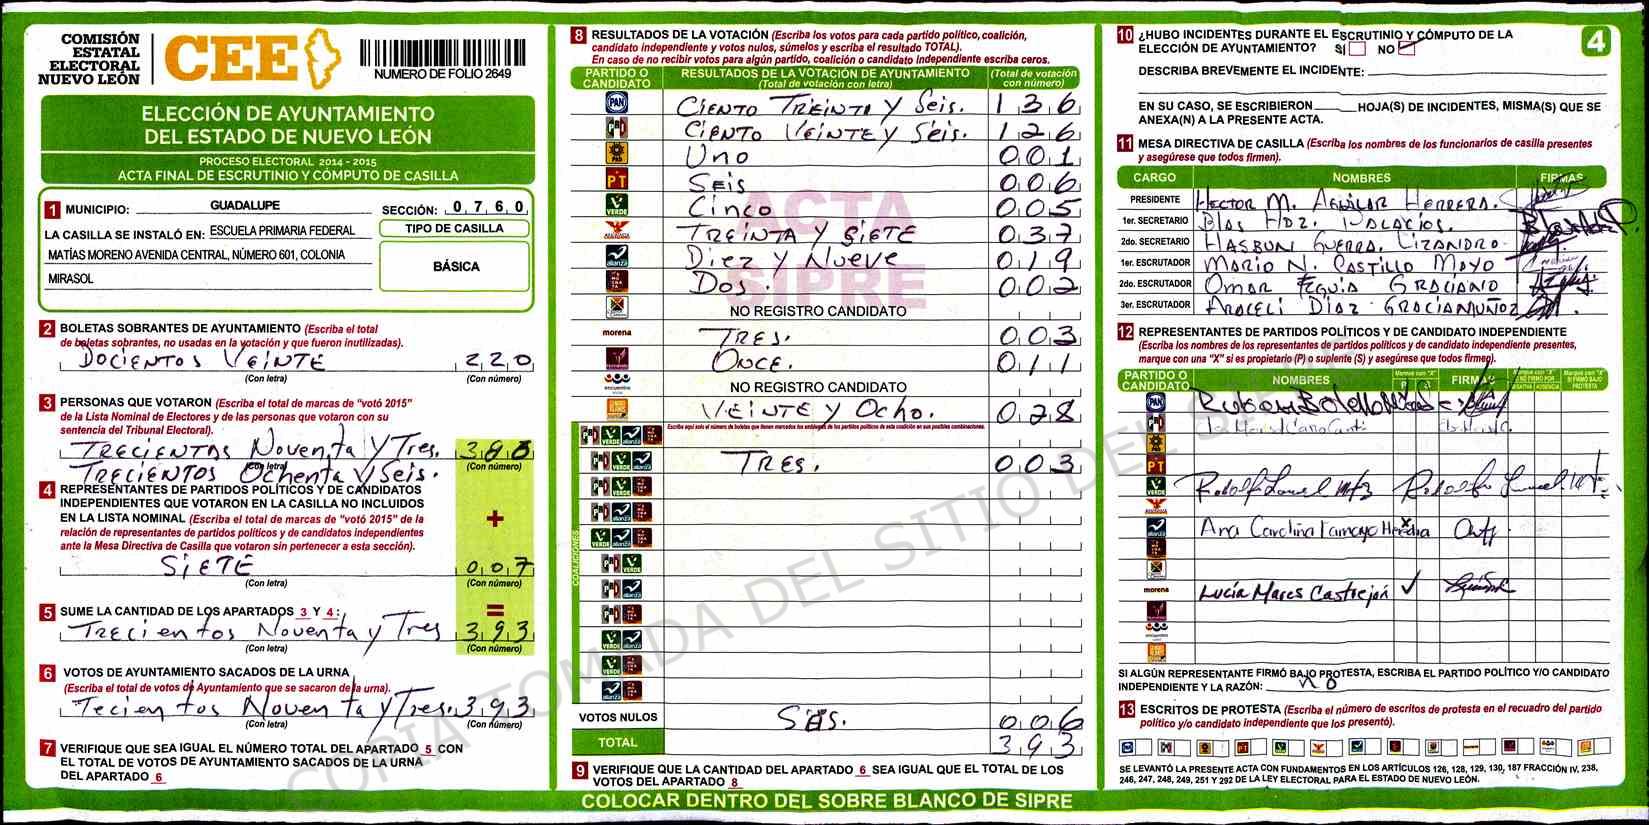 COMISIÓN
ESTATAL
ELECTORAL
NUEVO LEÓN
CEE
NUMERO DE FOLIO 2649
ELECCIÓN DE AYUNTAMIENTO
DEL ESTADO DE NUEVO LEÓN
PROCESO ELECTORAL 2014 - 2015
ACTA FINAL DE ESCRUTINIO Y CÓMPUTO DE CASILLA
1 MUNICIPIO: GUADALUPE SECCIÓN: 0 7 6 0
LA CASILLA SE INSTALÓ EN: ESCUELA PRIMARIA FEDERAL
MATÍAS MORENO AVENIDA CENTRAL, NÚMERO 601, COLONIA
MIRASOL
TIPO DE CASILLA
BÁSICA
2 BOLETAS SOBRANTES DE AYUNTAMIENTO (Escriba el total
de boletas sobrantes, no usadas en la votación y que fueron inutilizadas).
DOCIENTOS VEINTE 220
(Con letra) (Con número)
3 PERSONAS QUE VOTARON (Escriba el total de marcas de “votó 2015”
de la Lista Nominal de Electores y de las personas que votaron con su
sentencia del Tribunal Electoral).
TRECIENTAS Noventa Y Tres.
(Con letra) (Con número)
TRECIENTOS Ochenta y Seis.
4 REPRESENTANTES DE PARTIDOS POLÍTICOS Y DE CANDIDATOS
INDEPENDIENTES QUE VOTARON EN LA CASILLA NO INCLUIDOS
EN LA LISTA NOMINAL (Escriba el total de marcas de “votó 2015” de la
relación de representantes de partidos políticos y de candidatos independientes
ante la Mesa Directiva de Casilla que votaron sin pertenecer a esta sección).
+
SIETE 007
(Con letra) (Con número)
5 SUME LA CANTIDAD DE LOS APARTADOS 3 Y 4:
=
Trecientos Noventa y Tres 393
(Con letra) (Con número)
6 VOTOS DE AYUNTAMIENTO SACADOS DE LA URNA
(Escriba el total de votos de Ayuntamiento que se sacaron de la urna).
Tecientos Noventa y Tres. 393
(Con letra) (Con número)
7 VERIFIQUE QUE SEA IGUAL EL NÚMERO TOTAL DEL APARTADO 5 CON
EL TOTAL DE VOTOS DE AYUNTAMIENTO SACADOS DE LA URNA
DEL APARTADO 6
8 RESULTADOS DE LA VOTACIÓN (Escriba los votos para cada partido político, coalición,
candidato independiente y votos nulos, súmelos y escriba el resultado TOTAL).
En caso de no recibir votos para algún partido, coalición o candidato independiente escriba ceros.
PARTIDO O CANDIDATO
RESULTADOS DE LA VOTACIÓN DE AYUNTAMIENTO
(Total de votación con letra)
(Total de votación con número)
PAN CIENTO TREINTA Y SEIS. 136
PRD CIENTO VEINTE Y SEIS. 126
UNO 001
PT SEIS 006
VERDE CINCO 005
TREINTA Y SIETE 037
alianza DIEZ Y NUEVE 019
DOS. 002
NO REGISTRO CANDIDATO
morena TRES. 003
ONCE. 011
NO REGISTRO CANDIDATO
VEINTE Y OCHO. 028
Escriba aquí solo el número de boletas que tienen marcados los emblemas de los partidos políticos de esta coalición en sus posibles combinaciones.
TRES. 003
COALICIONES
VOTOS NULOS SEIS. 006
TOTAL 393
ACTA
SIPRE
9 VERIFIQUE QUE LA CANTIDAD DEL APARTADO 6 SEA IGUAL QUE EL TOTAL DE LOS
VOTOS DEL APARTADO 8
COLOCAR DENTRO DEL SOBRE BLANCO DE SIPRE
4
10 ¿HUBO INCIDENTES DURANTE EL ESCRUTINIO Y CÓMPUTO DE LA
ELECCIÓN DE AYUNTAMIENTO? SI NO
DESCRIBA BREVEMENTE EL INCIDENTE:
EN SU CASO, SE ESCRIBIERON HOJA(S) DE INCIDENTES, MISMA(S) QUE SE
ANEXA(N) A LA PRESENTE ACTA.
11 MESA DIRECTIVA DE CASILLA (Escriba los nombres de los funcionarios de casilla presentes
y asegúrese que todos firmen).
CARGO NOMBRES FIRMAS
PRESIDENTE HECTOR M. AGUILAR HERRERA.
1er. SECRETARIO BLAS HDZ. PALACIOS.
2do. SECRETARIO HASBUN GUERRA. LIZANDRO
1er. ESCRUTADOR MARIO N. CASTILLO MOYO
2do. ESCRUTADOR OMAR EGUIA GRACIANO
3er. ESCRUTADOR ARACELI DIAZ GRACIAMUÑOZ
12 REPRESENTANTES DE PARTIDOS POLÍTICOS Y DE CANDIDATO INDEPENDIENTE
(Escriba los nombres de los representantes de partidos políticos y de candidato independiente presentes,
marque con una "X" si es propietario (P) o suplente (S) y asegúrese que todos firmen).
PARTIDO O CANDIDATO NOMBRES FIRMAS
PAN Ruben Botello
PT
VERDE
Ana Carolina Tamayo Heredia X
morena Lucía Mares Castrejón ✓
SI ALGÚN REPRESENTANTE FIRMÓ BAJO PROTESTA, ESCRIBA EL PARTIDO POLÍTICO Y/O CANDIDATO
INDEPENDIENTE Y LA RAZÓN: NO
13 ESCRITOS DE PROTESTA (Escriba el número de escritos de protesta en el recuadro del partido
político y/o candidato independiente que los presentó).
SE LEVANTÓ LA PRESENTE ACTA CON FUNDAMENTOS EN LOS ARTÍCULOS 126, 128, 129, 130, 187 FRACCIÓN IV, 238,
246, 247, 248, 249, 251 Y 292 DE LA LEY ELECTORAL PARA EL ESTADO DE NUEVO LEÓN.
COPIA TOMADA DEL SITIO DEL SIPRE